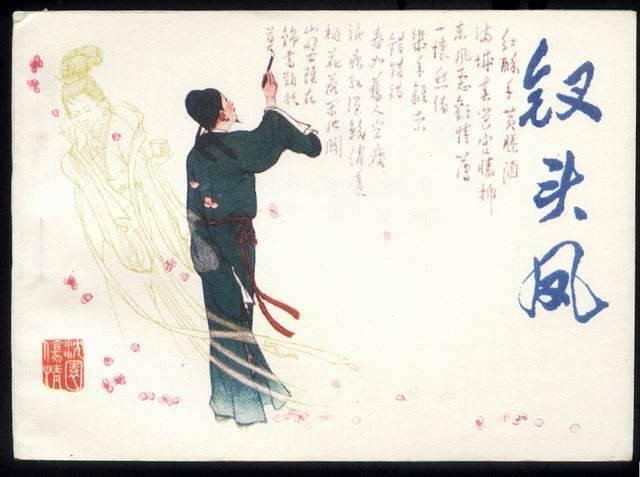 钗头凤
红酥手黄縢酒
满城春色宫墙柳
东风恶欢情薄
一懷愁绪
幾年離索
错错错
春如舊人空瘦
泪痕红浥鲛绡透
桃花落闲池阁
山盟雖在
錦書難托
莫
沈園
傷情